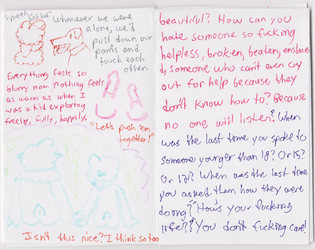 "meet Rabbit"
"Whenever we were
alone, we'd
pull down our
pants and
touch each
other.
Everything feels so
blurry now. nothing feels
as warm as when I
was a kid exploring
freely, fully, happily.
"Let's push 'em
together!"
Isn't this nice? I think so too
beautiful? How can you
hate someone so fucking
helpless, broken, beaten,
& someone who can't even cry
out for help because they
don't know how to? Because
no one will listen? When
was the last time you spoke to
someone younger than 18? Or 15?
Or 12? When was the last time
you asked them how they were
doing? How's your fucking
life?? You don't fucking care!